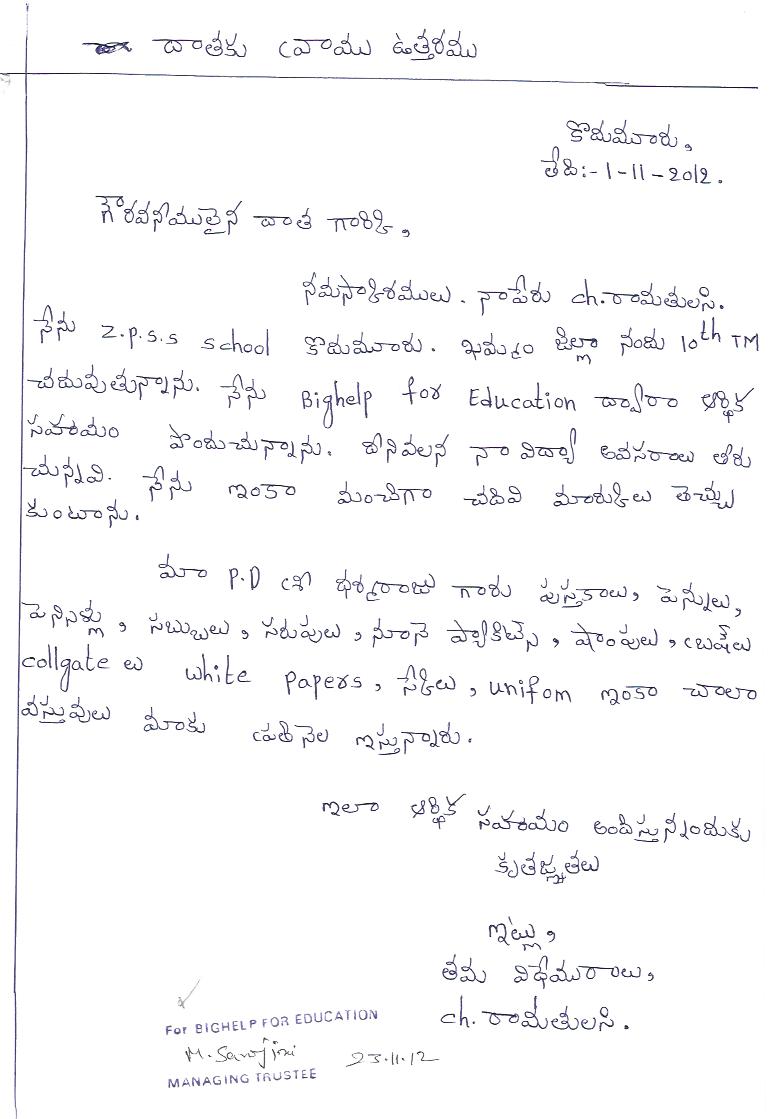 దాతకు వ్రాయు ఉత్తరము
కొదుమూరు,
తేది:- 1-11-2012.
గౌరవనీయులైన దాత గారికి,
నమస్కారములు. నాపేరు ch. రామతులసి.
నేను Z.P.S.S school కొదుమూరు. ఖమ్మం జిల్లా నందు 10th TM
చదువుతున్నాను. నేను Bighelp for Education ద్వారా ఆర్థిక
సహాయం పొందుచున్నాను. దీనివలన నా విద్యా అవసరాలు తీరు
చున్నవి. నేను ఇంకా మంచిగా చదివి మార్కులు తెచ్చు
కుంటాను.
మా P.D శ్రీ ధర్మరాజు గారు పుస్తకాలు, పెన్నులు,
పెన్సిళ్లు, సబ్బులు, సరుపులు, నూనె ప్యాకెట్స్, షాంపులు, బ్రష్‌లు
collgate లు white papers, స్కేలు, unifom ఇంకా చాలా
వస్తువులు మాకు ప్రతినెల ఇస్తున్నారు.
ఇలా ఆర్థిక సహాయం అందిస్తున్నందుకు
కృతజ్ఞతలు
ఇట్లు,
తమ విధేయురాలు,
ch. రామతులసి.
For BIGHELP FOR EDUCATION
M. Sarojini 23.11.12
MANAGING TRUSTEE